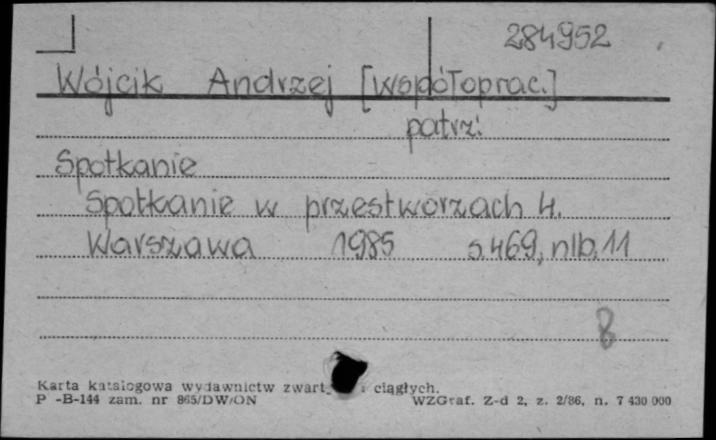 284952
Wójcik Andrzej [współoprac.]
patrz:
Spotkanie
Spotkanie w przestworzach 4.
Warszawa 1985 s.469, nlb. 11
8
Karta katalogowa wydawnictw zwart i ciągłych.
P -B-144 zam. nr 865/DW/ON WZGraf. Z-d 2, z. 2/86, n. 7 430 000